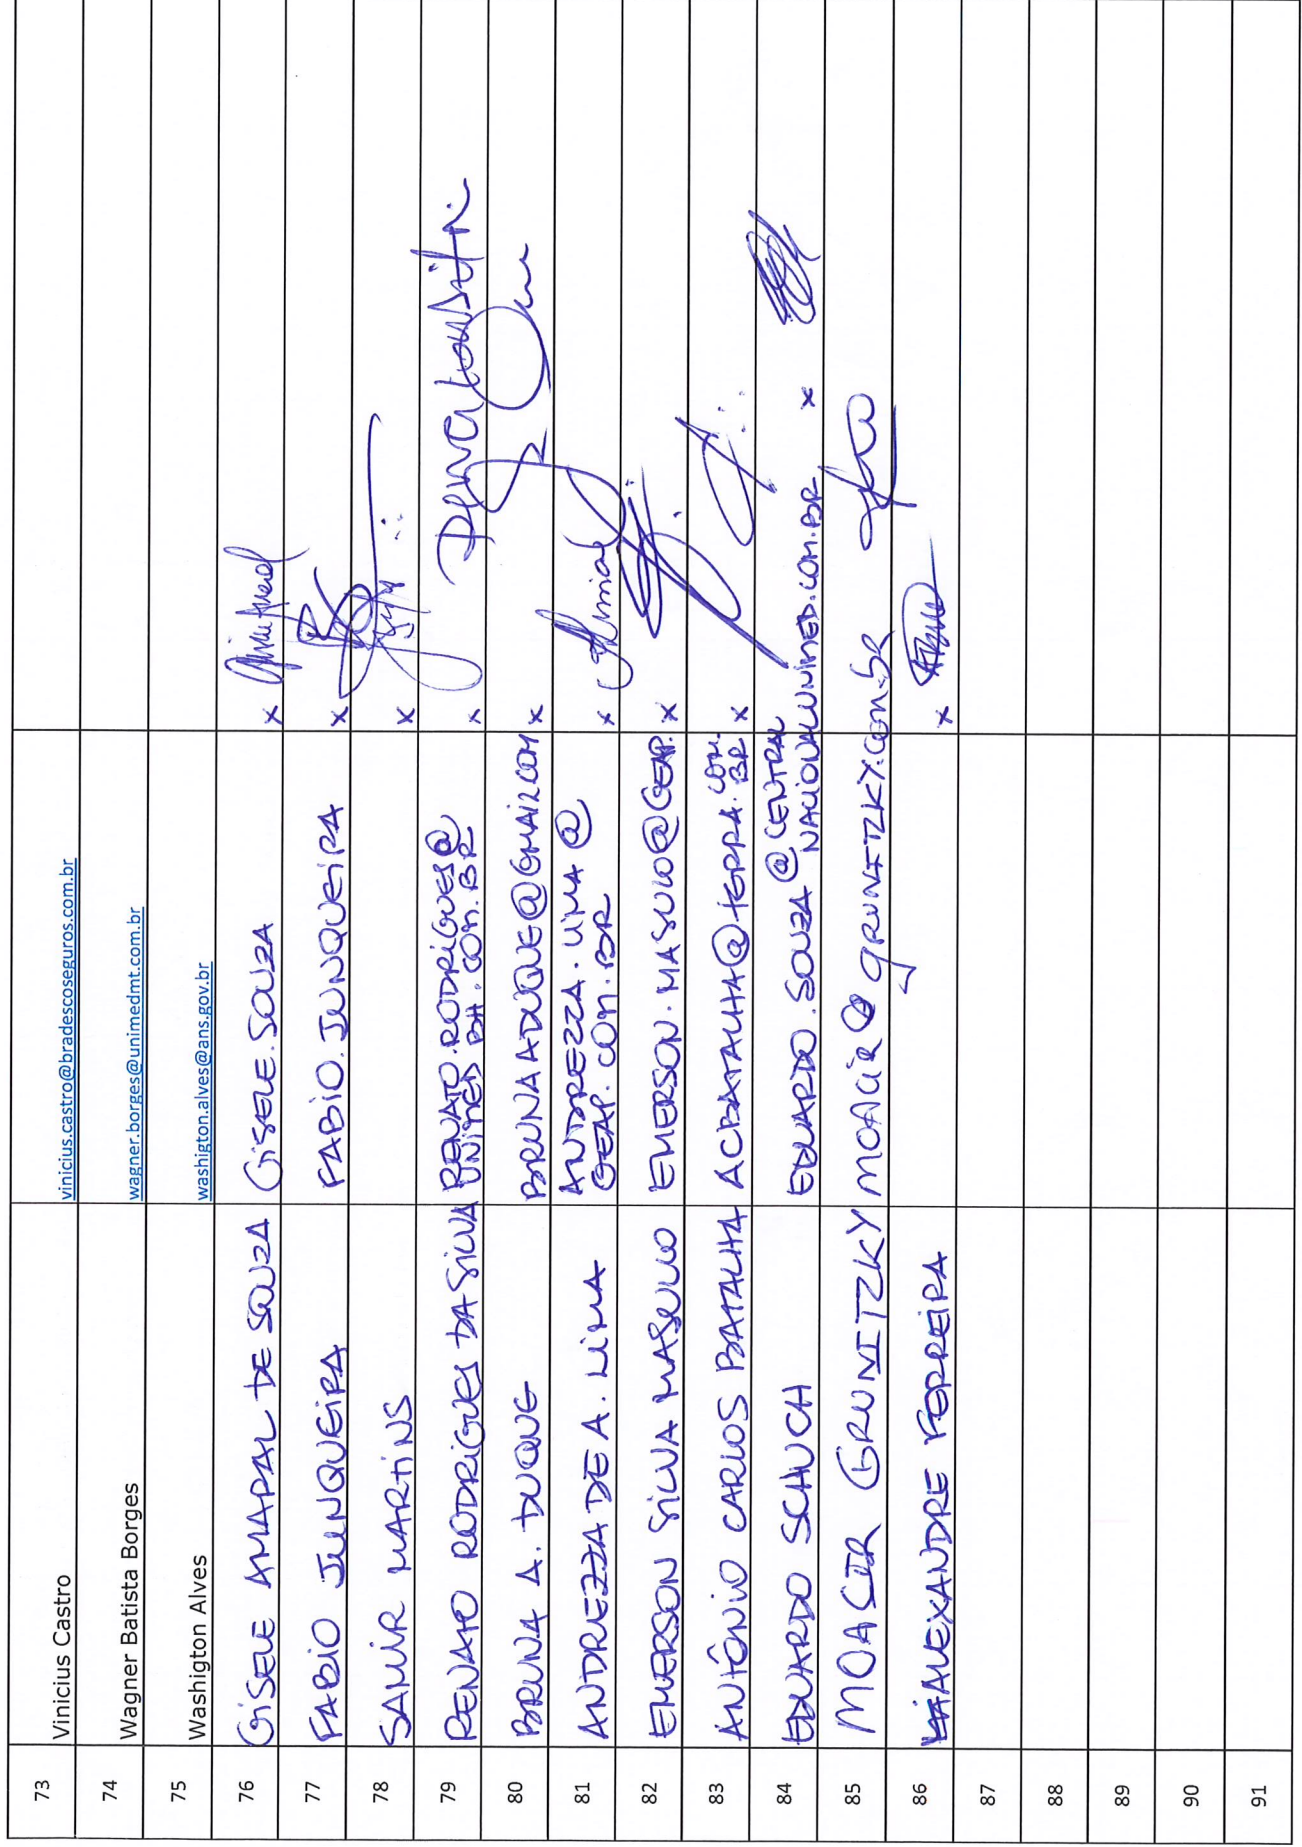 73 Vinicius Castro vinicius.castro@bradescoseguros.com.br
74 Wagner Batista Borges wagner.borges@unimedmt.com.br
75 Washigton Alves washigton.alves@ans.gov.br
76 GISELE AMARAL DE SOUZA GISELE.SOUZA x
77 FABIO JUNQUEIRA FABIO.JUNQUEIRA x
78 SAMIR MARTINS x
79 RENATO RODRIGUES DA SILVA RENATO.RODRIGUES@
UNIMED BH.COM.BR x
80 BRUNA A. DUQUE BRUNAADUQUE@GMAIL.COM x
81 ANDREZZA DE A. LIMA ANDREZZA.LIMA@
GEAP.COM.BR x
82 EMERSON SILVA MASULLO EMERSON.MASULLO@GEAP. x
83 ANTÔNIO CARLOS BATALHA ACBATALHA@TERRA.COM.
BR x
84 EDUARDO SCHUCH EDUARDO.SOUZA@CENTRAL
NACIONALUNIMED.COM.BR x
85 MOACIR GRUNITZKY MOACIR@GRUNITZKY.com.br
86 ALEXANDRE FERREIRA x
87
88
89
90
91